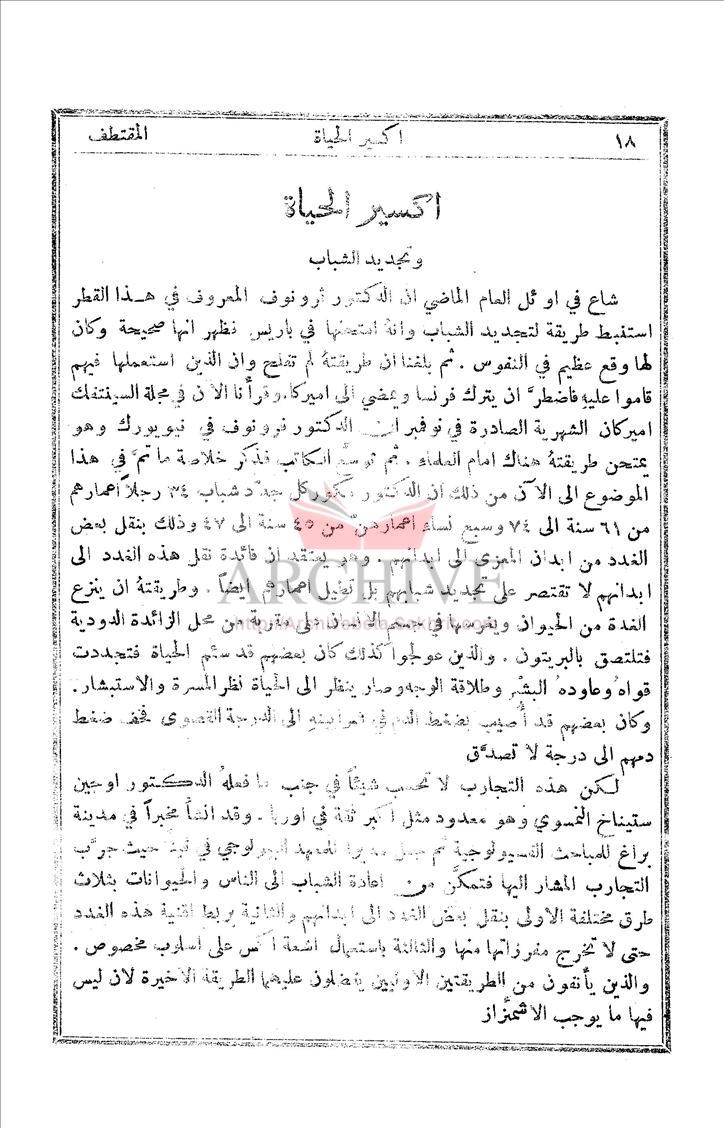 ١٨ اكسير الحياة المقتطف
اكسير الحياة
وتجديد الشباب
شاع في اوئل العام الماضي ان الدكتور ڤرونوف المعروف في هذا القطر
استنبط طريقة لتجديد الشباب وانهُ امتحنها في باريس فظهر انها صحيحة وكان
لها وقع عظيم في النفوس . ثم بلغنا ان طريقتهُ لم تفلح وان الذين استعملها فيهم
قاموا عليهِ فاضطرَّ ان يترك فرنسا ويمضي الى اميركا. وقرأنا الآن في مجلة السينتفك
اميركان الشهرية الصادرة في نوفمبر ان الدكتور ڤرونوف في نيويورك وهو
يمتحن طريقتهُ هناك امام العلماء . ثم توسع الكاتب فذكر خلاصة ما تمَّ في هذا
الموضوع الى الآن من ذلك ان الدكتور جدّد شباب ٣٤ رجلاً اعمارهم
من ٦١ سنة الى ٧٤ وسبع نساء اعمارهنَّ من ٤٥ سنة الى ٤٧ وذلك بنقل بعض
الغدد من ابدان المعزى الى ابدانهم . وهو يعتقد ان فائدة نقل هذه الغدد الى
ابدانهم لا تقتصر على تجديد شبابهم بل تطيل اعمارهم ايضاً . وطريقتهُ ان ينزع
الغدة من الحيوان ويغرسها في جسم الانسان على مقربة من محل الزائدة الدودية
فتلتصق بالبريتون . والذين عولجوا كذلك كان بعضهم قد سئم الحياة فتجددت
قواهُ وعاودهُ البشر وطلاقة الوجه وصار ينظر الى الحياة نظر المسرة والاستبشار .
وكان بعضهم قد أُصيب بضغط الدم في شرايينهِ الى الدرجة القصوى فخف ضغط
دمهم الى درجة لا تصدَّق
لكن هذه التجارب لا تحسب شيئاً في جنب ما فعلهُ الدكتور اوجين
ستيناخ النمسوي وهو معدود مثل اكبر ثقة في اوربا . وقد انشأ مخبراً في مدينة
براغ للمباحث الفسيولوجية ثم جعل مديراً للمعهد البيولوجي في ڤينّا حيث جرَّب
التجارب المشار اليها فتمكَّن من اعادة الشباب الى الناس والحيوانات بثلاث
طرق مختلفة الاولى بنقل بعض الغدد الى ابدانهم والثانية بربط اقنية هذه الغدد
حتى لا تخرج مفرزاتها منها والثالثة باستعمال اشعة اكس على اسلوب مخصوص .
والذين يأنفون من الطريقتين الاوليين يفضلون عليهما الطريقة الاخيرة لان ليس
فيها ما يوجب الاشمئزاز
ARCHIVE